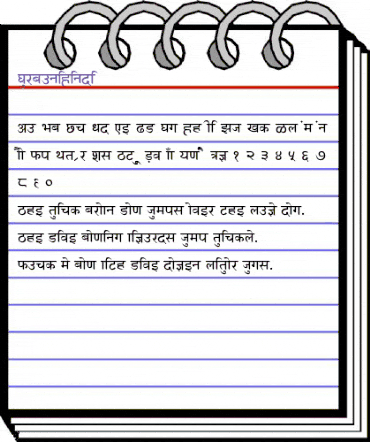 घूरबउनहिनिदि
अउ भब छच धद एइ ढड घग हह ीि झज खक ळल ंम ंन
ौो फप थत ,र शस ठट ूु ड़व ाँ यण ैे त्रज्ञ १ २ ३ ४ ५ ६ ७
८ ९ ०
ठहइ तुचिक बरोन डोण जुमपस ोवइर टहइ लउज्ञे दोग.
ठहइ डविइ बोणनिग ज्ञिउरदस जुमप तुचिकले.
फउचक मे बोण ाटिह डविइ दोज्ञइन लतुिोर जुगस.